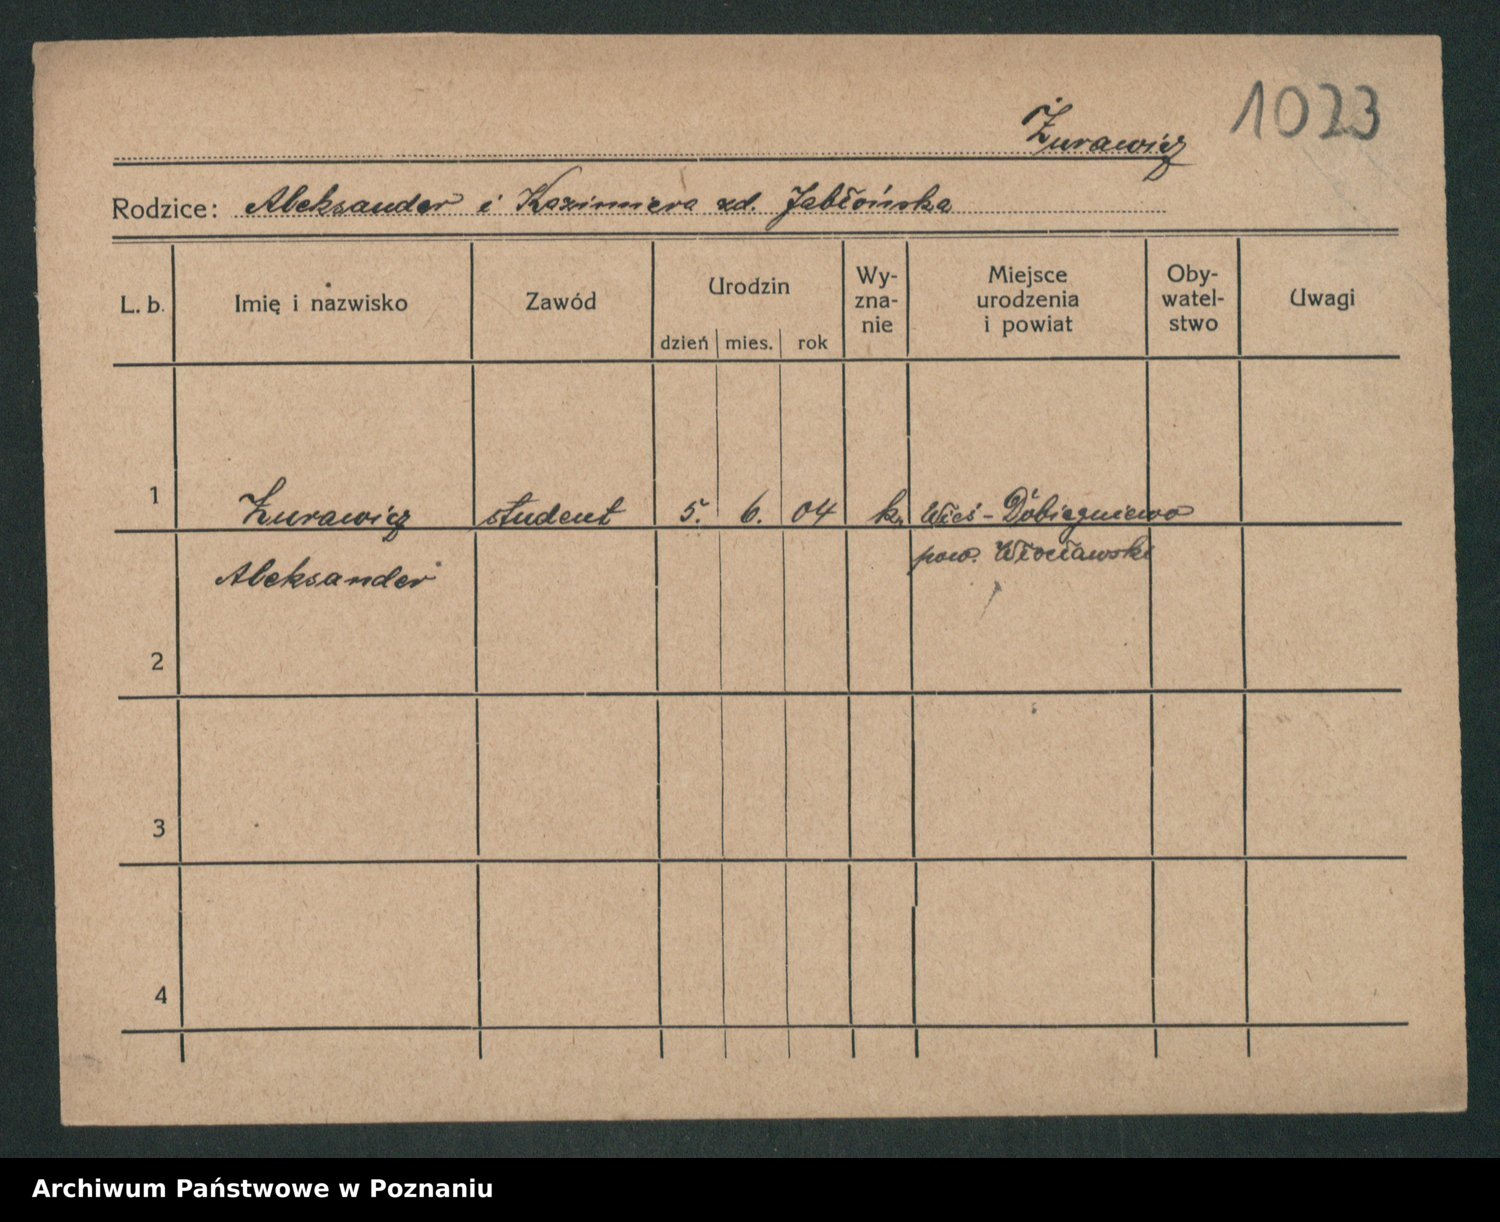 1023
Żurawicz
Rodzice: Aleksander i Kazimiera zd. Jabłońska
L. b. Imię i nazwisko Zawód Urodzin Wy-zna-nie Miejsce urodzenia i powiat Oby-watel-stwo Uwagi
dzień mies. rok
1 Żurawicz student 5. 6. 04 k. Wieś - Dobiegniewo
Aleksander pow. Włocławski
2
3
4
Archiwum Państwowe w Poznaniu